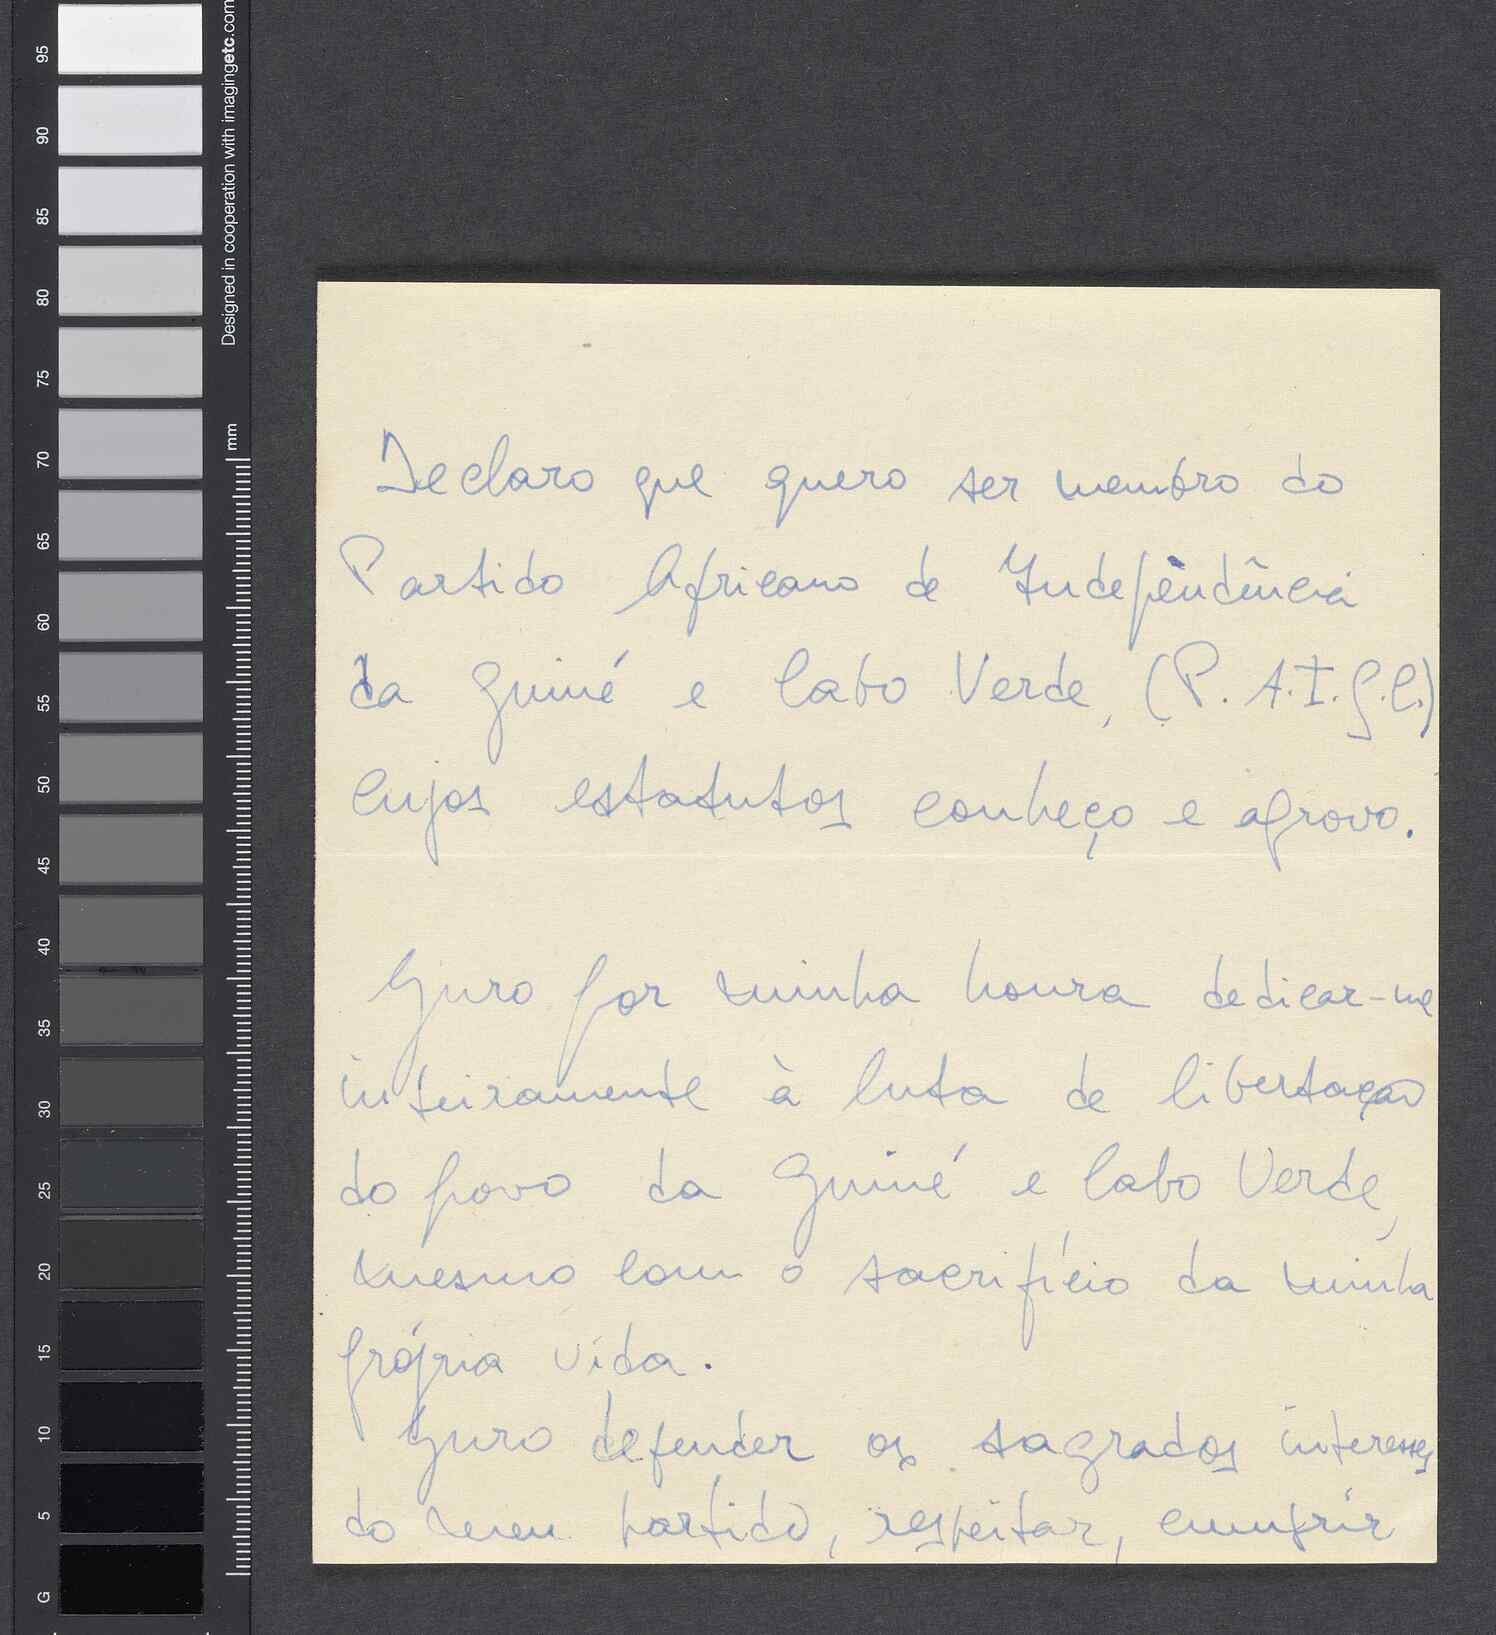 Declaro que quero ser membro do
Partido Africano de Independência
da Guiné e Cabo Verde, (P.A.I.G.C.)
cujos estatutos conheço e aprovo.
Juro por minha honra dedicar-me
inteiramente à luta de libertação
do povo da Guiné e Cabo Verde,
mesmo com o sacrifício da minha
própria vida.
Juro defender os sagrados interesses
do meu partido, respeitar, cumprir
95
90
85
80
75
70
65
60
55
50
45
40
35
30
25
20
15
10
5
G
mm
Designed in cooperation with imagingetc.com